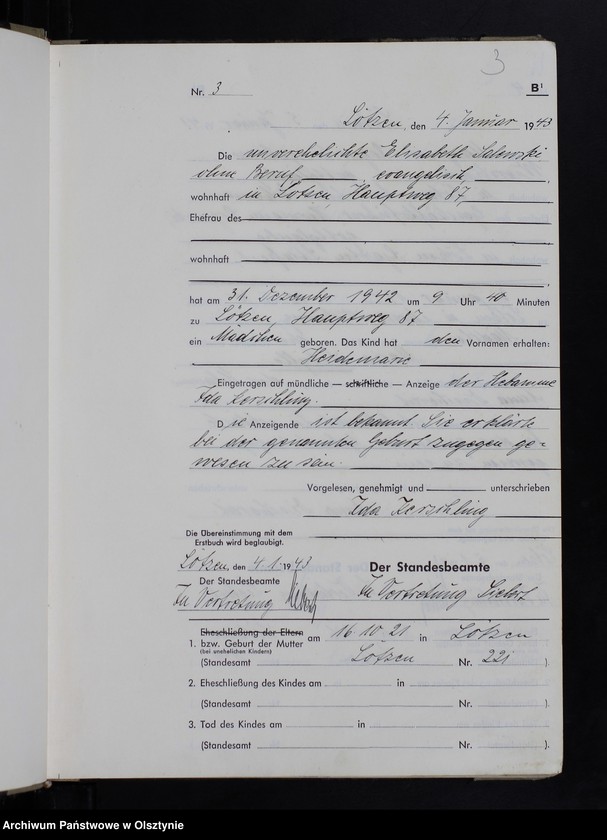 3
Nr. 3
B¹
Lötzen, den 4. Januar 1943
Die unverehelichte Elisabeth Salewski
ohne Beruf, evangelisch,
wohnhaft in Lötzen, Hauptweg 87,
Ehefrau des
wohnhaft
hat am 31. Dezember 1942 um 9 Uhr 40 Minuten
zu Lötzen, Hauptweg 87
ein Mädchen geboren. Das Kind hat den Vornamen erhalten:
Heidemarie
Eingetragen auf mündliche — schriftliche — Anzeige der Hebamme
Ida Kerschling.
Die Anzeigende ist bekannt. Sie erklärte
bei der genannten Geburt zugegen ge=
wesen zu sein.
Vorgelesen, genehmigt und unterschrieben
Ida Kerschling
Die Übereinstimmung mit dem
Erstbuch wird beglaubigt.
Lötzen, den 4.1.1943
Der Standesbeamte
Der Standesbeamte
In Vertretung
In Vertretung
Eheschließung der Eltern am 16.10.21 in Lötzen
1. bzw. Geburt der Mutter
(bei unehelichen Kindern)
(Standesamt Lötzen Nr. 221 ).
2. Eheschließung des Kindes am in
(Standesamt Nr. ).
3. Tod des Kindes am in
(Standesamt Nr. ).
Archiwum Państwowe w Olsztynie